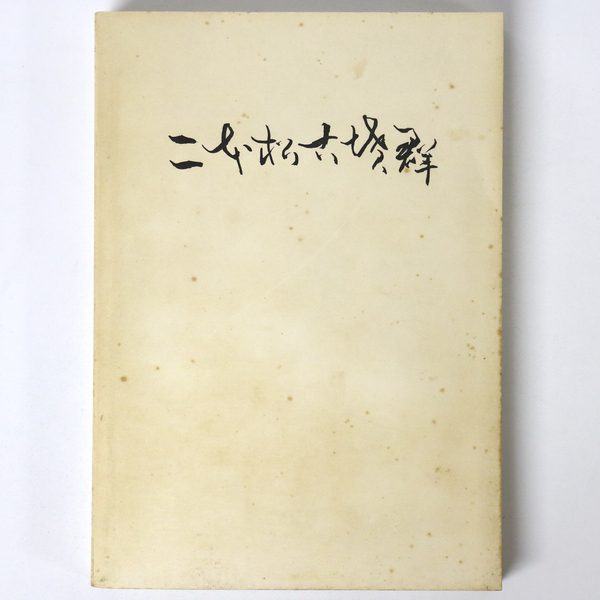 二本松古墳群